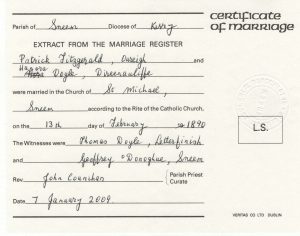 certificate
of marriage
Parish of Sneem Diocese of Kerry
EXTRACT FROM THE MARRIAGE REGISTER
Patrick Fitzgerald, Oursigh and
Hanora
Doyle, Direenauliffe
were married in the Church of St Michael,
Sneem according to the Rite of the Catholic Church,
on the 13th day of February 1890
The Witnesses were Thomas Doyle, Letterfinish
and Geoffrey O'Donoghue, Sneem
Rev John Counihan Parish Priest
Curate
Date 7 January 2009.
L.S.
VERITAS CO LTD DUBLIN